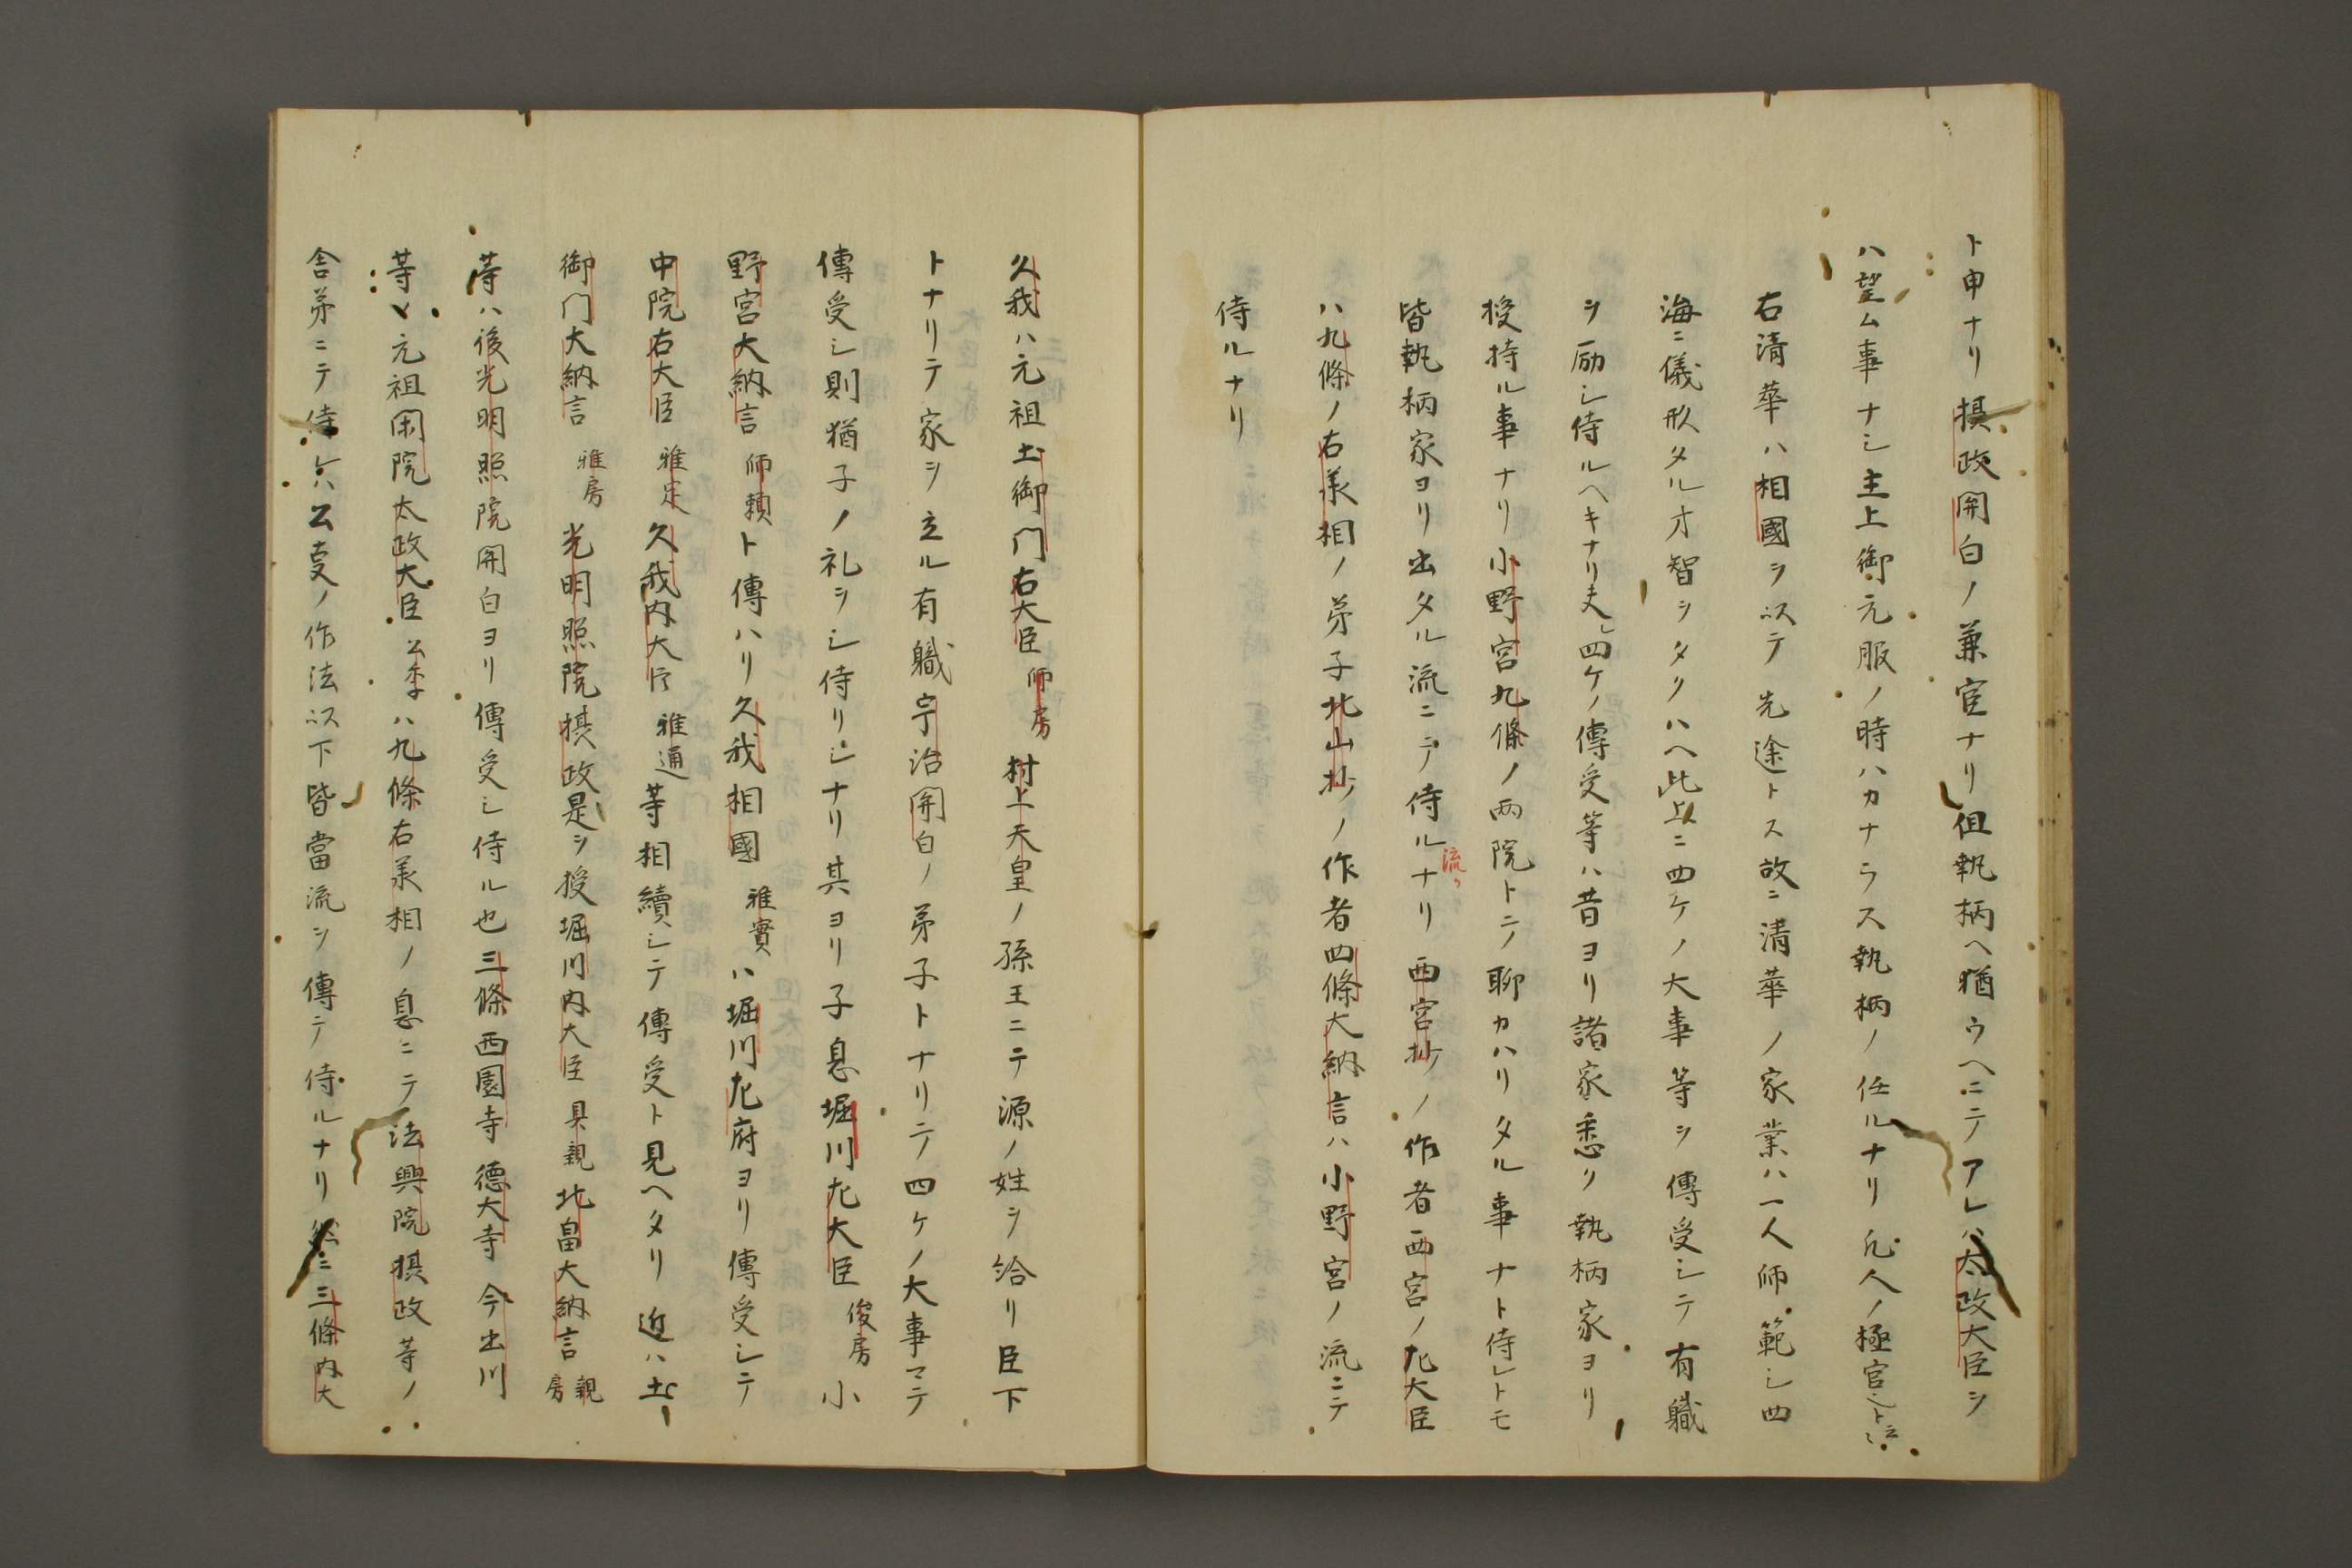 ト申ナリ摂政関白ノ兼官ナリ但執柄ヘ猶ウヘニテアレハ太政大臣ヲ
ハ望ム事ナシ主上御元服ノ時ハカナラス執柄ノ任ルナリ凡人ノ極官
右清華ハ相國ヲ以テ先途トス故ニ清華ノ家業ハ一人師範シ四
海ニ儀形タル才智ヲタクハヘ此上ニ四ケノ大事等ヲ傳受シテ有職
ヲ励シ侍ルヘキナリ夫四ケノ傳受等ハ昔ヨリ諸家悉ク執柄家ヨリ
授持ル事ナリ小野宮九條ノ両院トテ聊カハリタル事ナト侍レトモ
皆執柄家ヨリ出タル流ニテ侍ルナリ西宮抄ノ作者西宮ノ左大臣
流カ
ハ九條ノ右丞相ノ弟子北山抄ノ作者四條大納言ハ小野宮ノ流ニテ
侍ルナリ
久我ハ元祖土御門右大臣師房村上天皇ノ孫王ニテ源ノ姓ヲ給リ臣下
トナリテ家ヲ立ル有職宇治関白ノ弟子トナリテ四ケノ大事マテ
傳受シ則猶子ノ礼ヲシ侍リシナリ其ヨリ子息堀川左大臣俊房小
野宮大納言師頼ト傳ハリ久我相國雅實ハ堀川左府ヨリ傳受シテ
中院右大臣雅定久我内大臣雅通等相續シテ傳受ト見ヘタリ近ハ土
御门大納言雅房光明照院摂政是ヲ授堀川内大臣具親北畠大納言親房
等ハ後光明照院関白ヨリ傳受シ侍ル也三條西園寺徳大寺今出川
等ハ元祖閑院太政大臣公季ハ九條右丞相ノ息ニテ法興院摂政等ノ
舎弟ニテ侍ハ公亊ノ作法以下皆當流ヲ傳テ侍ルナリ然ニ三條内大